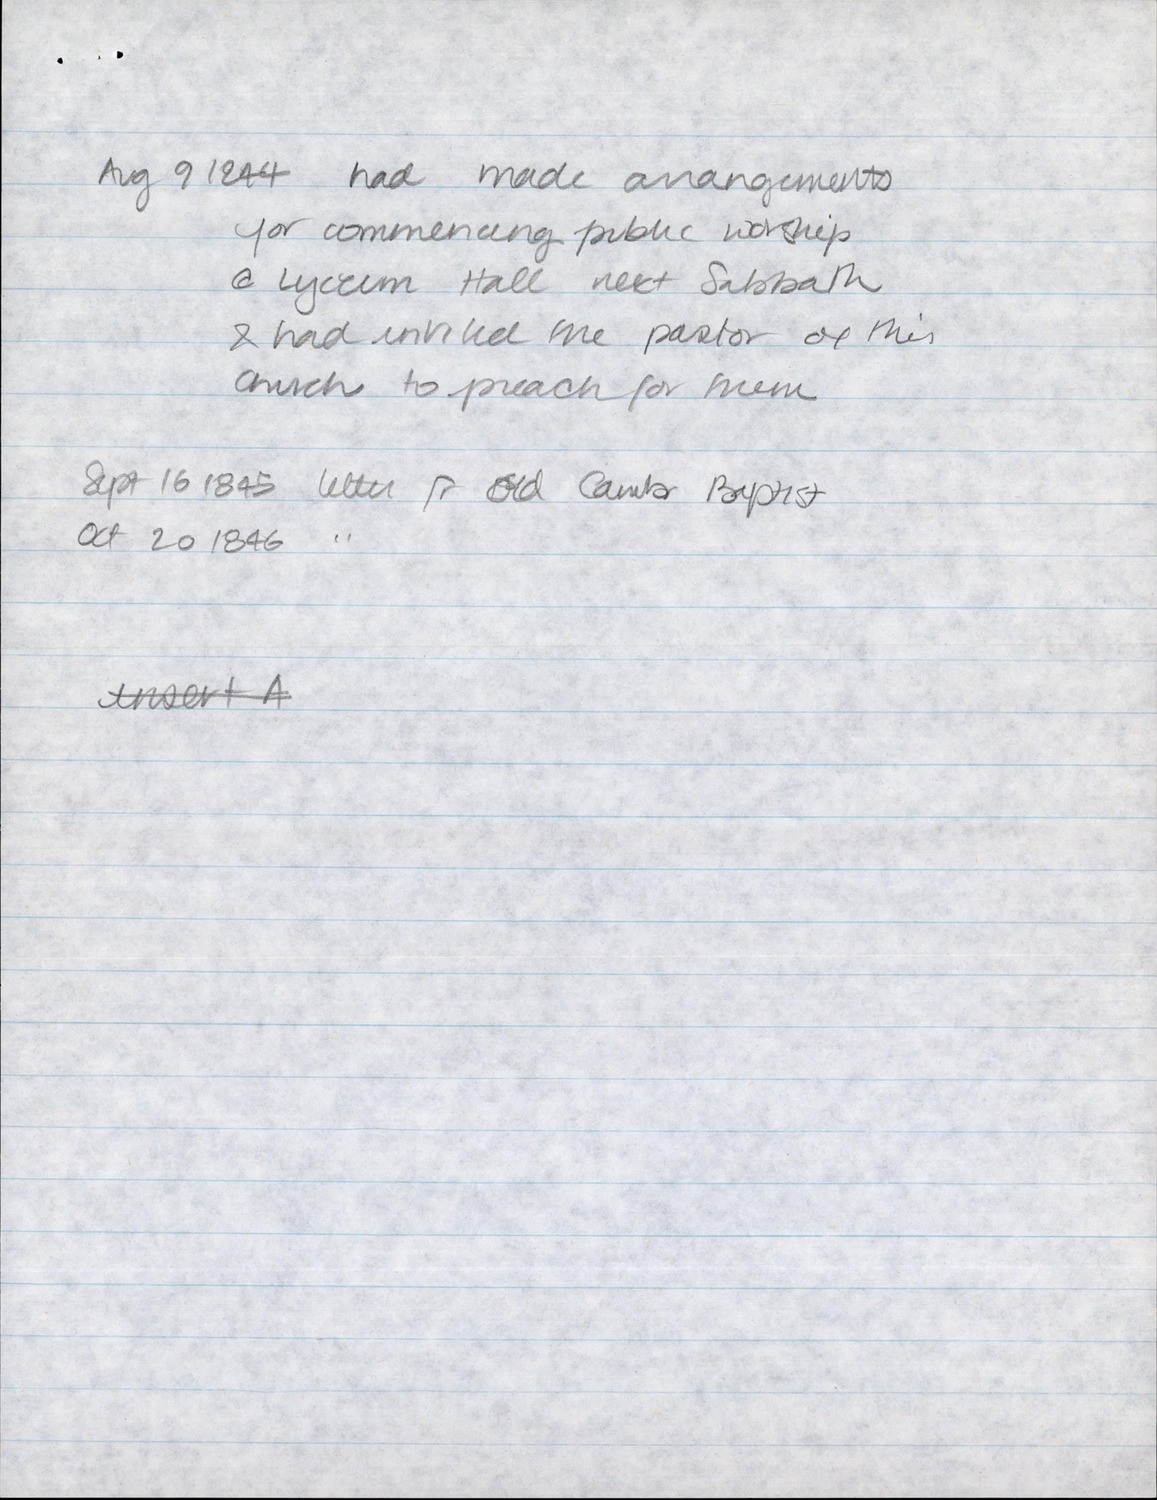 Aug 9 1844 had made arrangements
for commencing public worship
@ Lyceum Hall next Sabbath
& had invited the pastor of this
church to preach for them
Sept 16 1845 letter fr Old Camb Baptist
Oct 20 1846 "
Insert A